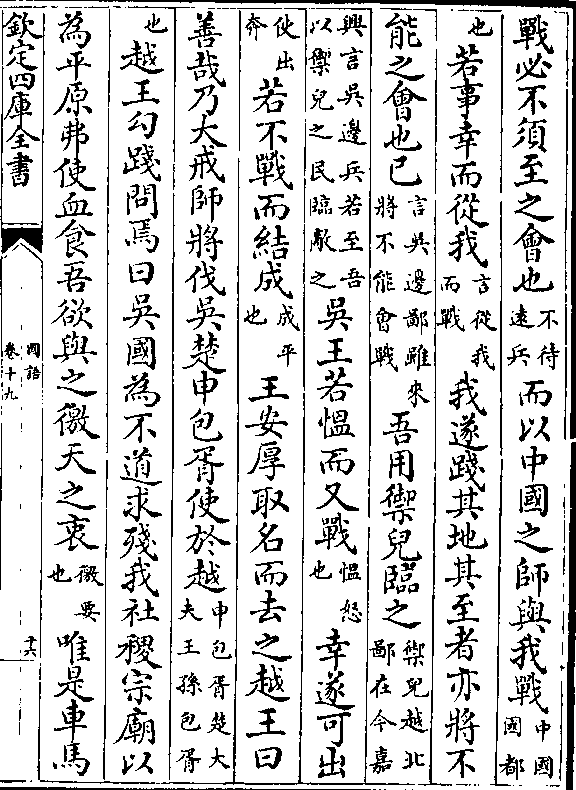 戰必不須至之會也不待遠兵而以中國之師與我戰中國國都
也若事幸而從我言從我而戰我遂踐其地其至者亦將不
能之會也已言吳邊鄙雖來將不能會戰吾用禦兒臨之禦兒越北鄙在今嘉
興言吳邊兵若至吾以禦兒之民臨敵之吳王若慍而又戰慍怒也幸遂可出
使出奔若不戰而結成成平也王安厚取名而去之越王曰
善哉乃大戒師將伐吳楚申包胥使於越申包胥楚大夫王孫包胥
也越王勾踐問焉曰吳國為不道求殘我社稷宗廟以
為平原弗使血食吾欲與之徼天之衷徼要也唯是車馬
欽定四庫全書
國語
卷十九
十六